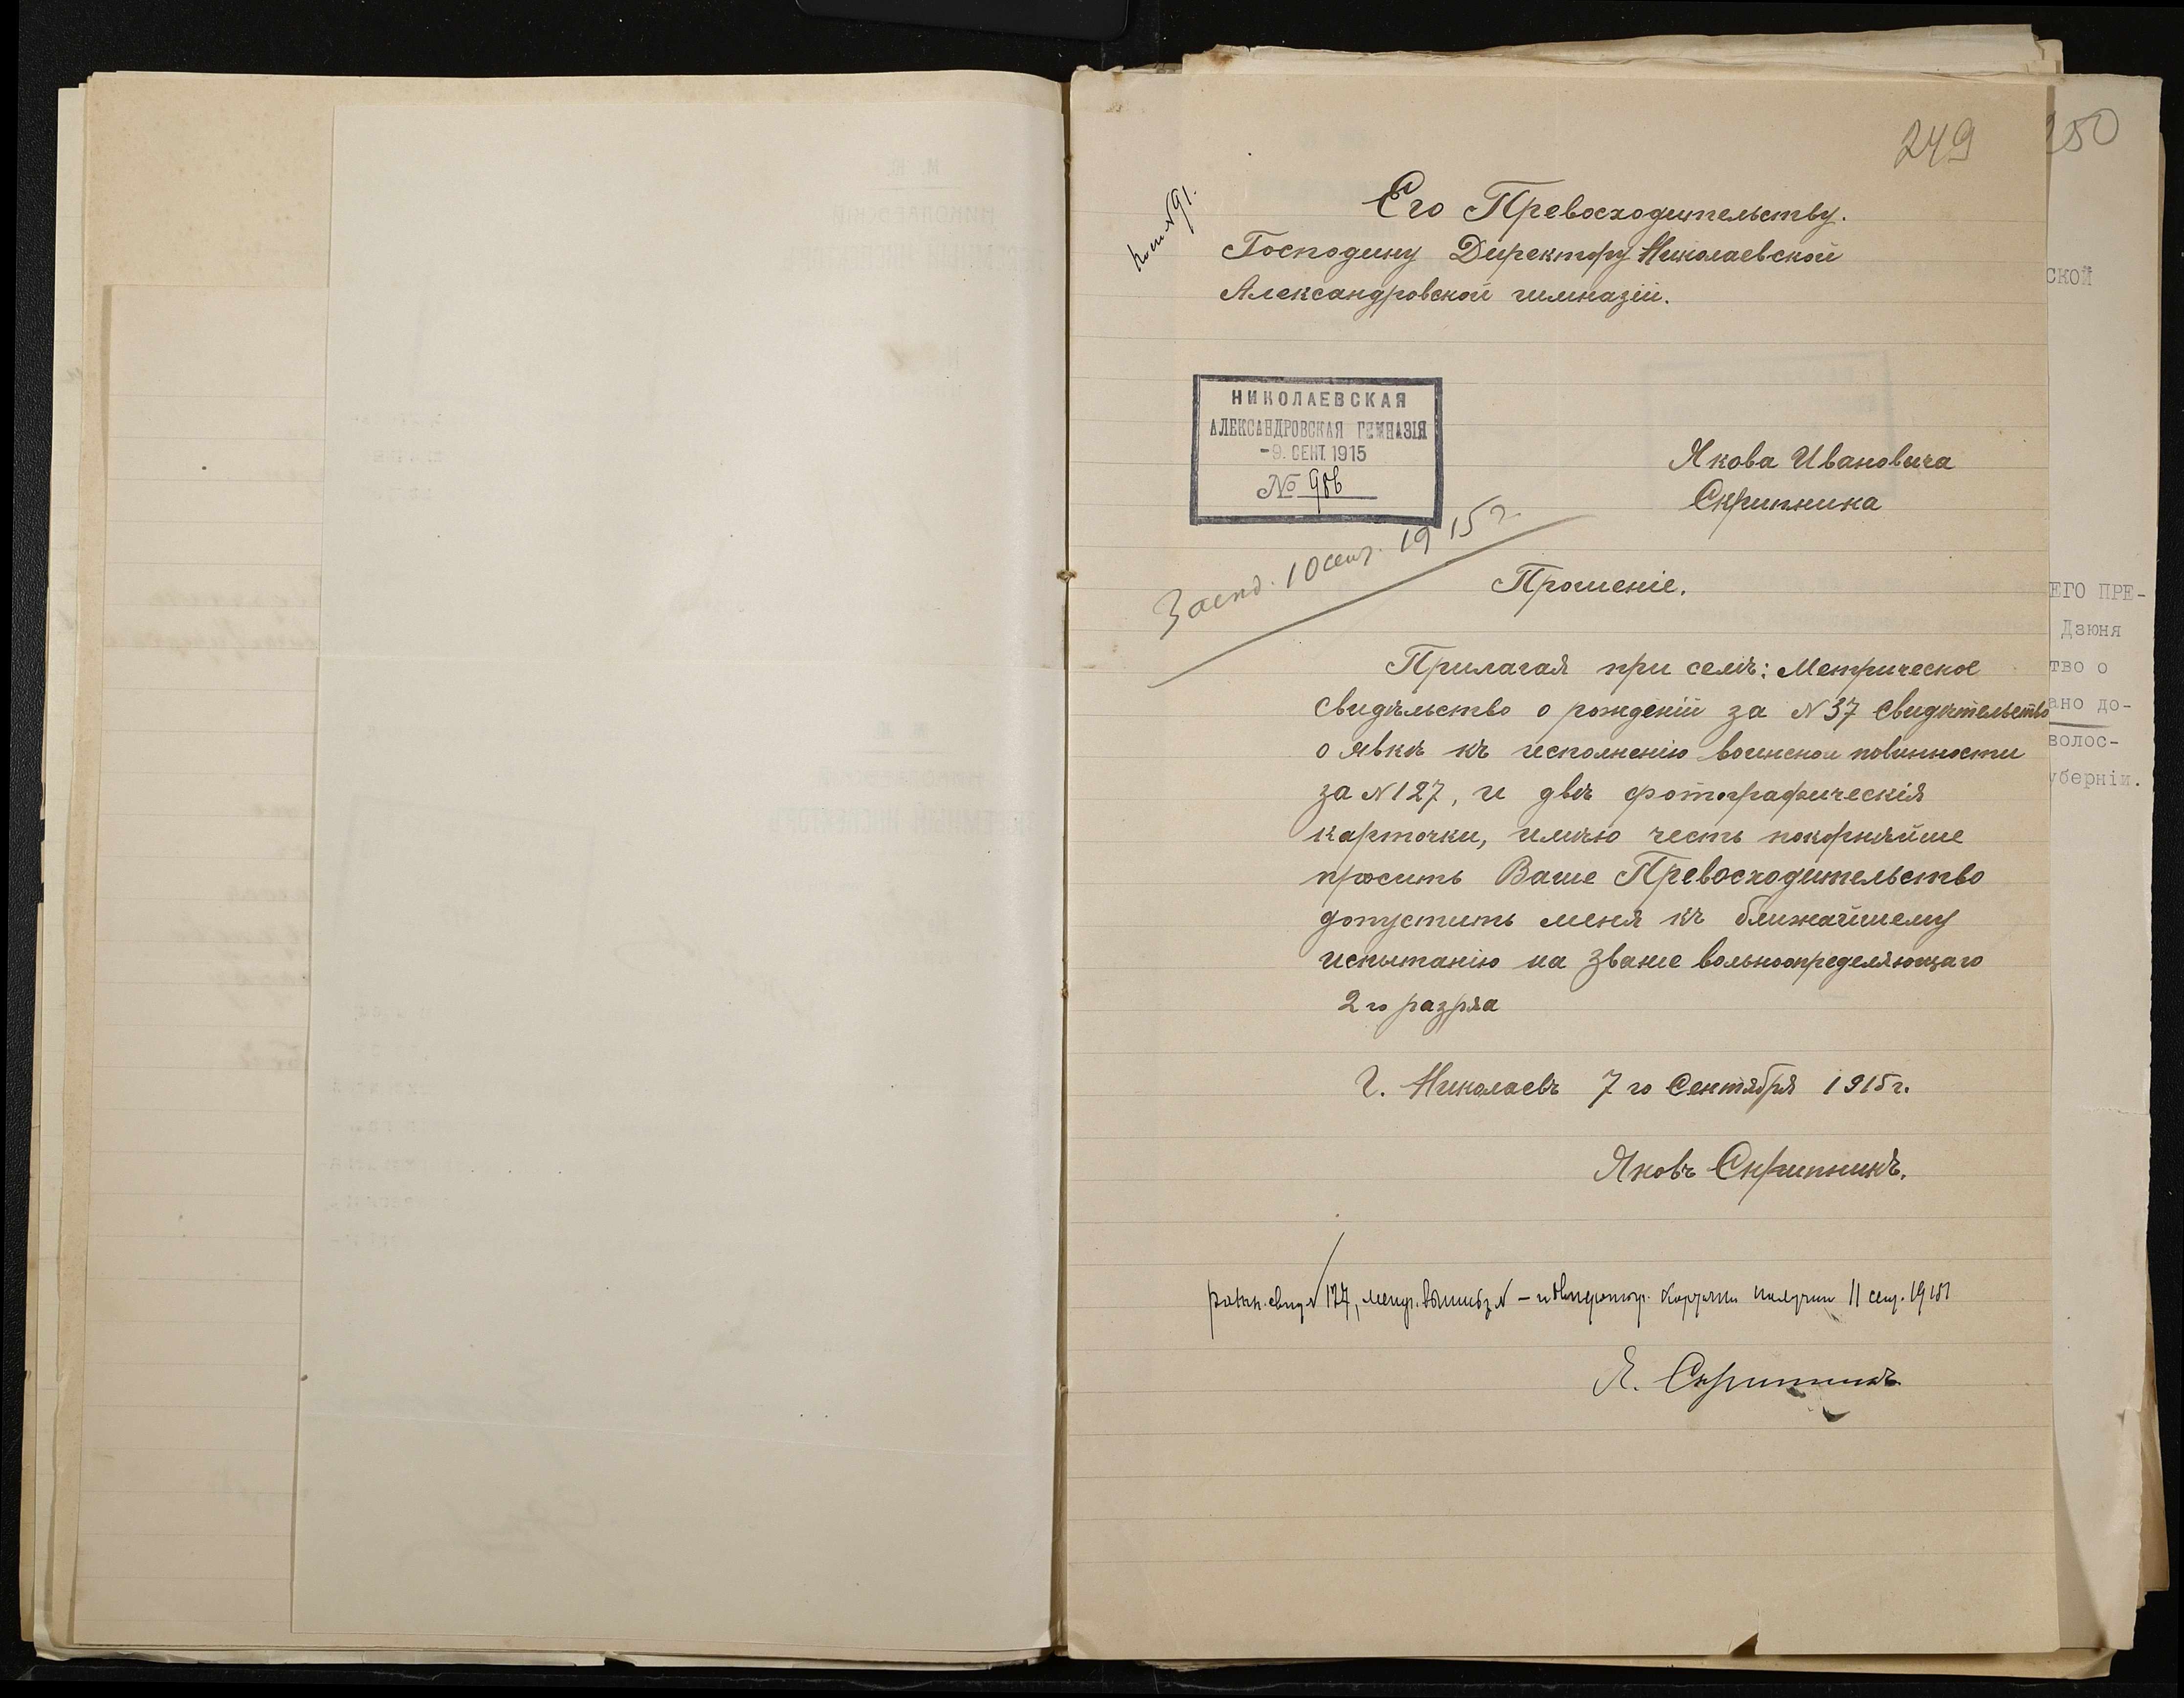 249
250
Его Превосходительству.
Господину Директору Николаевской
Александровской гимназіи.
№ 91.
НИКОЛАЕВСКАЯ
АЛЕКСАНДРОВСКАЯ ГИМНАЗІЯ
-9. СЕНТ. 1915
№ 986
Якова Ивановича
Скрипника
10 сент. 1915 г.
Прошеніе.
Прилагая при семъ: Метрическое
свидѣльство о рожденіи за № 37 свидѣтельство
о явкѣ къ исполненію воинской повинности
за № 127, и двѣ фотографическія
карточки, имѣю честь покорнѣйше
просить Ваше Превосходительство
допустить меня къ ближайшему
испытанію на званіе вольноопределяющаго
2 го разряа
Г. Николаевъ 7 го Сентября 1915 г.
Яковъ Скрипникъ.
свид. № 127, метр. – и карточки получил 11 сент. 1915
Я. Скрипникъ
СКОЙ
ЕГО ПРЕ-
Дзюня
тво о
ано до-
волос-
уберніи.